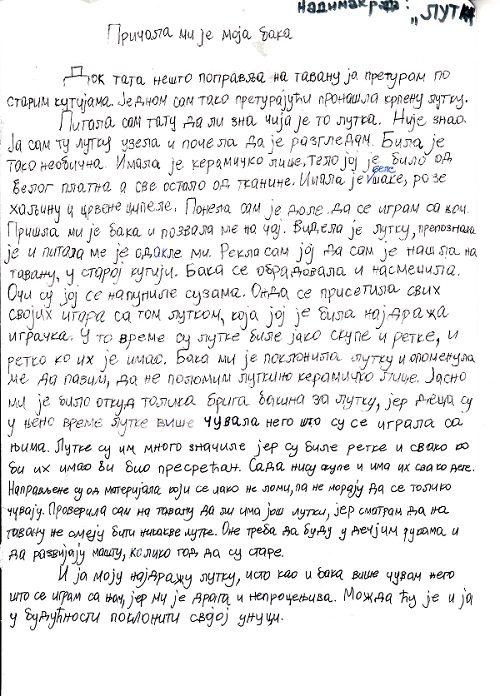 Надимак : „ЛУТКА
Причала ми је моја бака
Док тата нешто поправља на тавану ја претурам по
старим кутијама. Једном сам тако претурајући пронашла крпену лутку.
Питала сам тату да ли зна чија је то лутка. Није знао.
Ја сам ту лутку узела и почела да је разгледам. Била је
тако необична. Имала је керамичко лице, тело јој је било од
белог платна а све остало од тканине. Имала је беле шаке, розе
хаљину и црвене ципеле. Понела сам је доле да се играм са њом.
Пришла ми је бака и позвала ме на чај. Видела је лутку, препознала
је и питала ме је одакле ми. Рекла сам јој да сам је нашла на
тавану, у старој кутији. Бака се обрадовала и насмешила.
Очи су јој се напуниле сузама. Онда се присетила свих
својих игара са том лутком, која јој је била најдража
играчка. У то време су лутке биле јако скупе и ретке, и
ретко ко их је имао. Бака ми је поклонила лутку и опоменула
ме да пазим, да не поломим луткино керамичко лице. Јасно
ми је било откуд толика брига бакина за лутку, јер деца су
у њено време лутке више чувала него што су се играла са
њима. Лутке су им много значиле јер су биле ретке и свако ко
би их имао би био пресрећан. Сада нису скупе и има их свако дете.
Направљене су од материјала који се лако не ломи, па не морају да се толико
чувају. Проверила сам на тавану да ли има још лутки, јер сматрам да на
тавану не смеју бити никакве лутке. Оне треба да буду у дечјим рукама и
да развијају машту, колико год да су старе.
И ја моју најдражу лутку, исто као и бака више чувам него
што се играм са њом, јер ми је драга и непроцењива. Можда ћу је и ја
у будућности поклонити својој унуци.